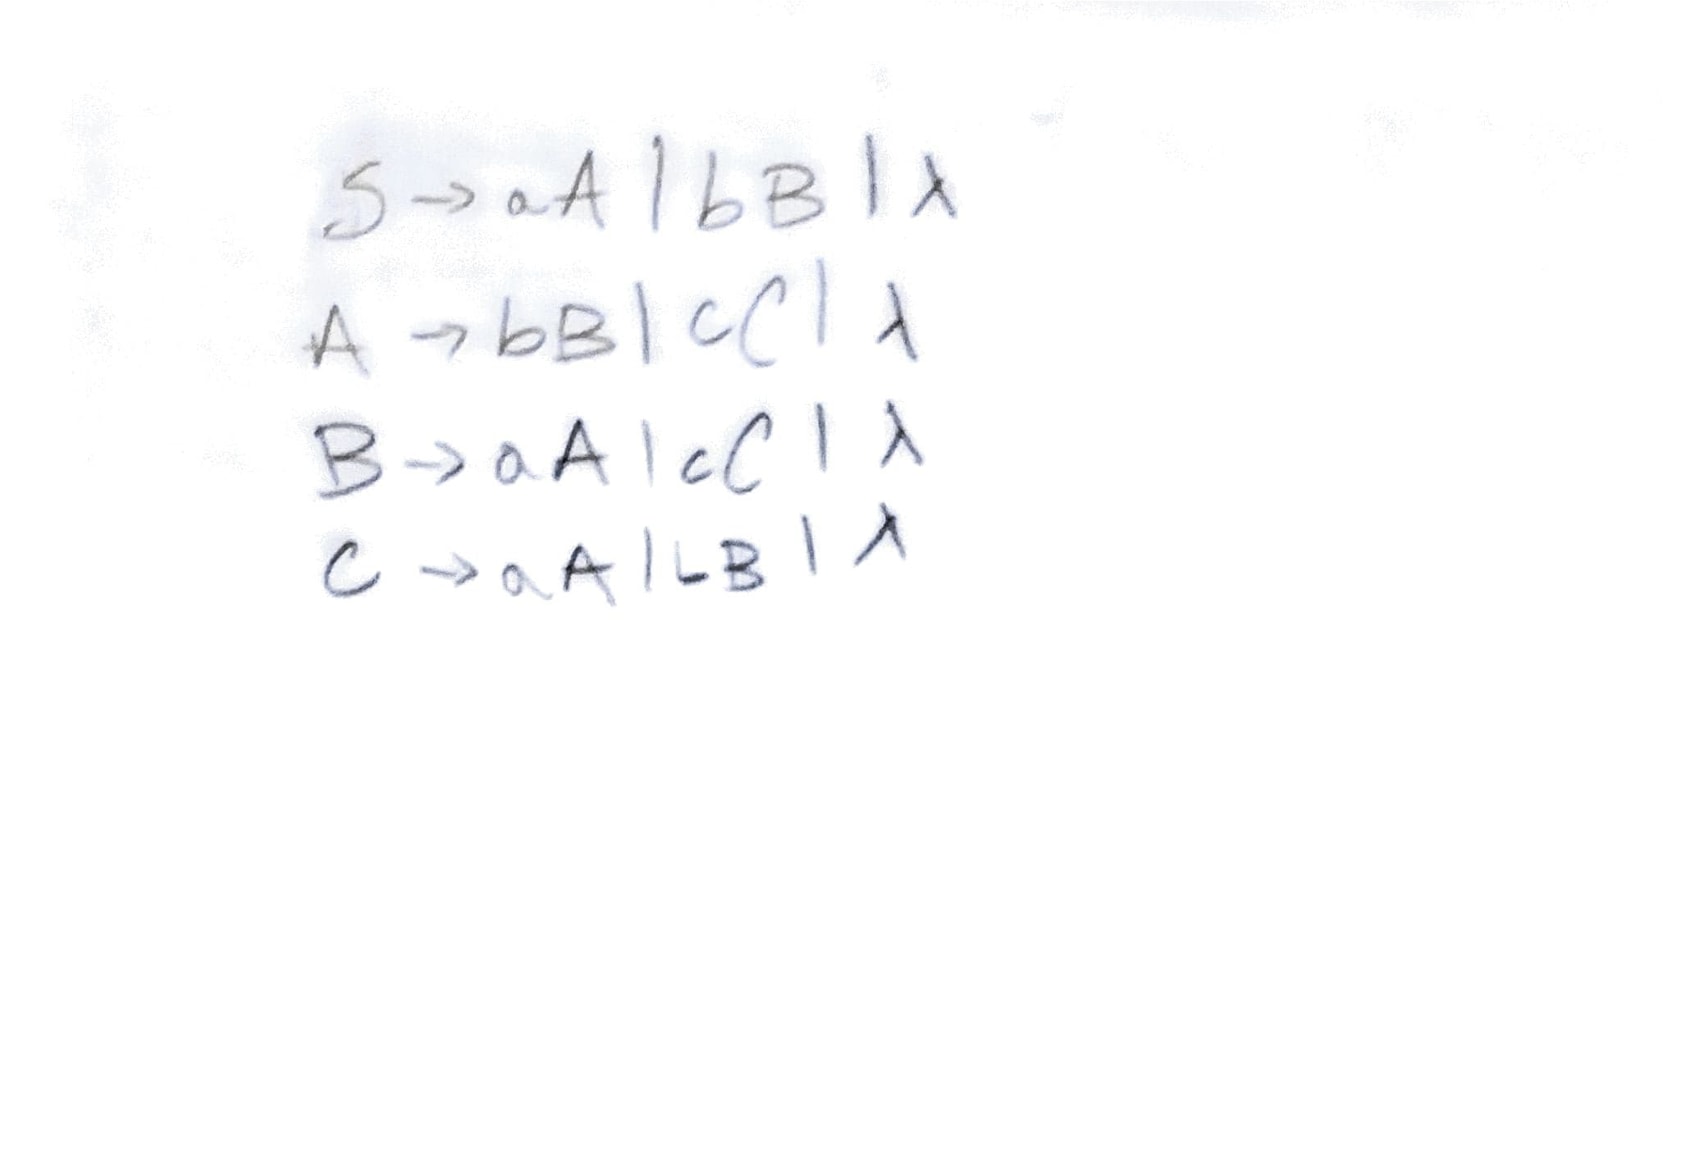 S → aA | bB | λ
A → bB | cC | λ
B → aA | cC | λ
C → aA | bB | λ